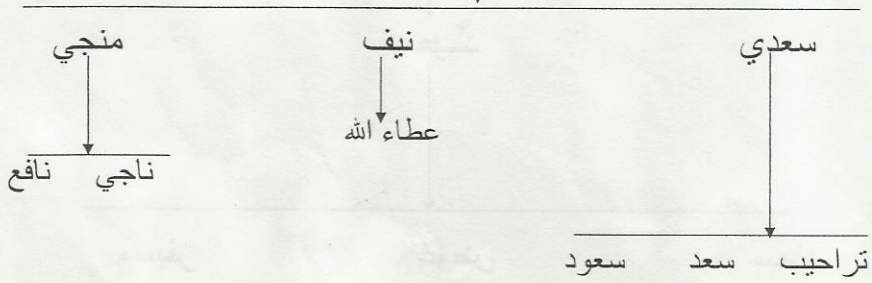 سعدي نيف منجي
عطاء الله
ناجي نافع
تراحيب سعد سعود